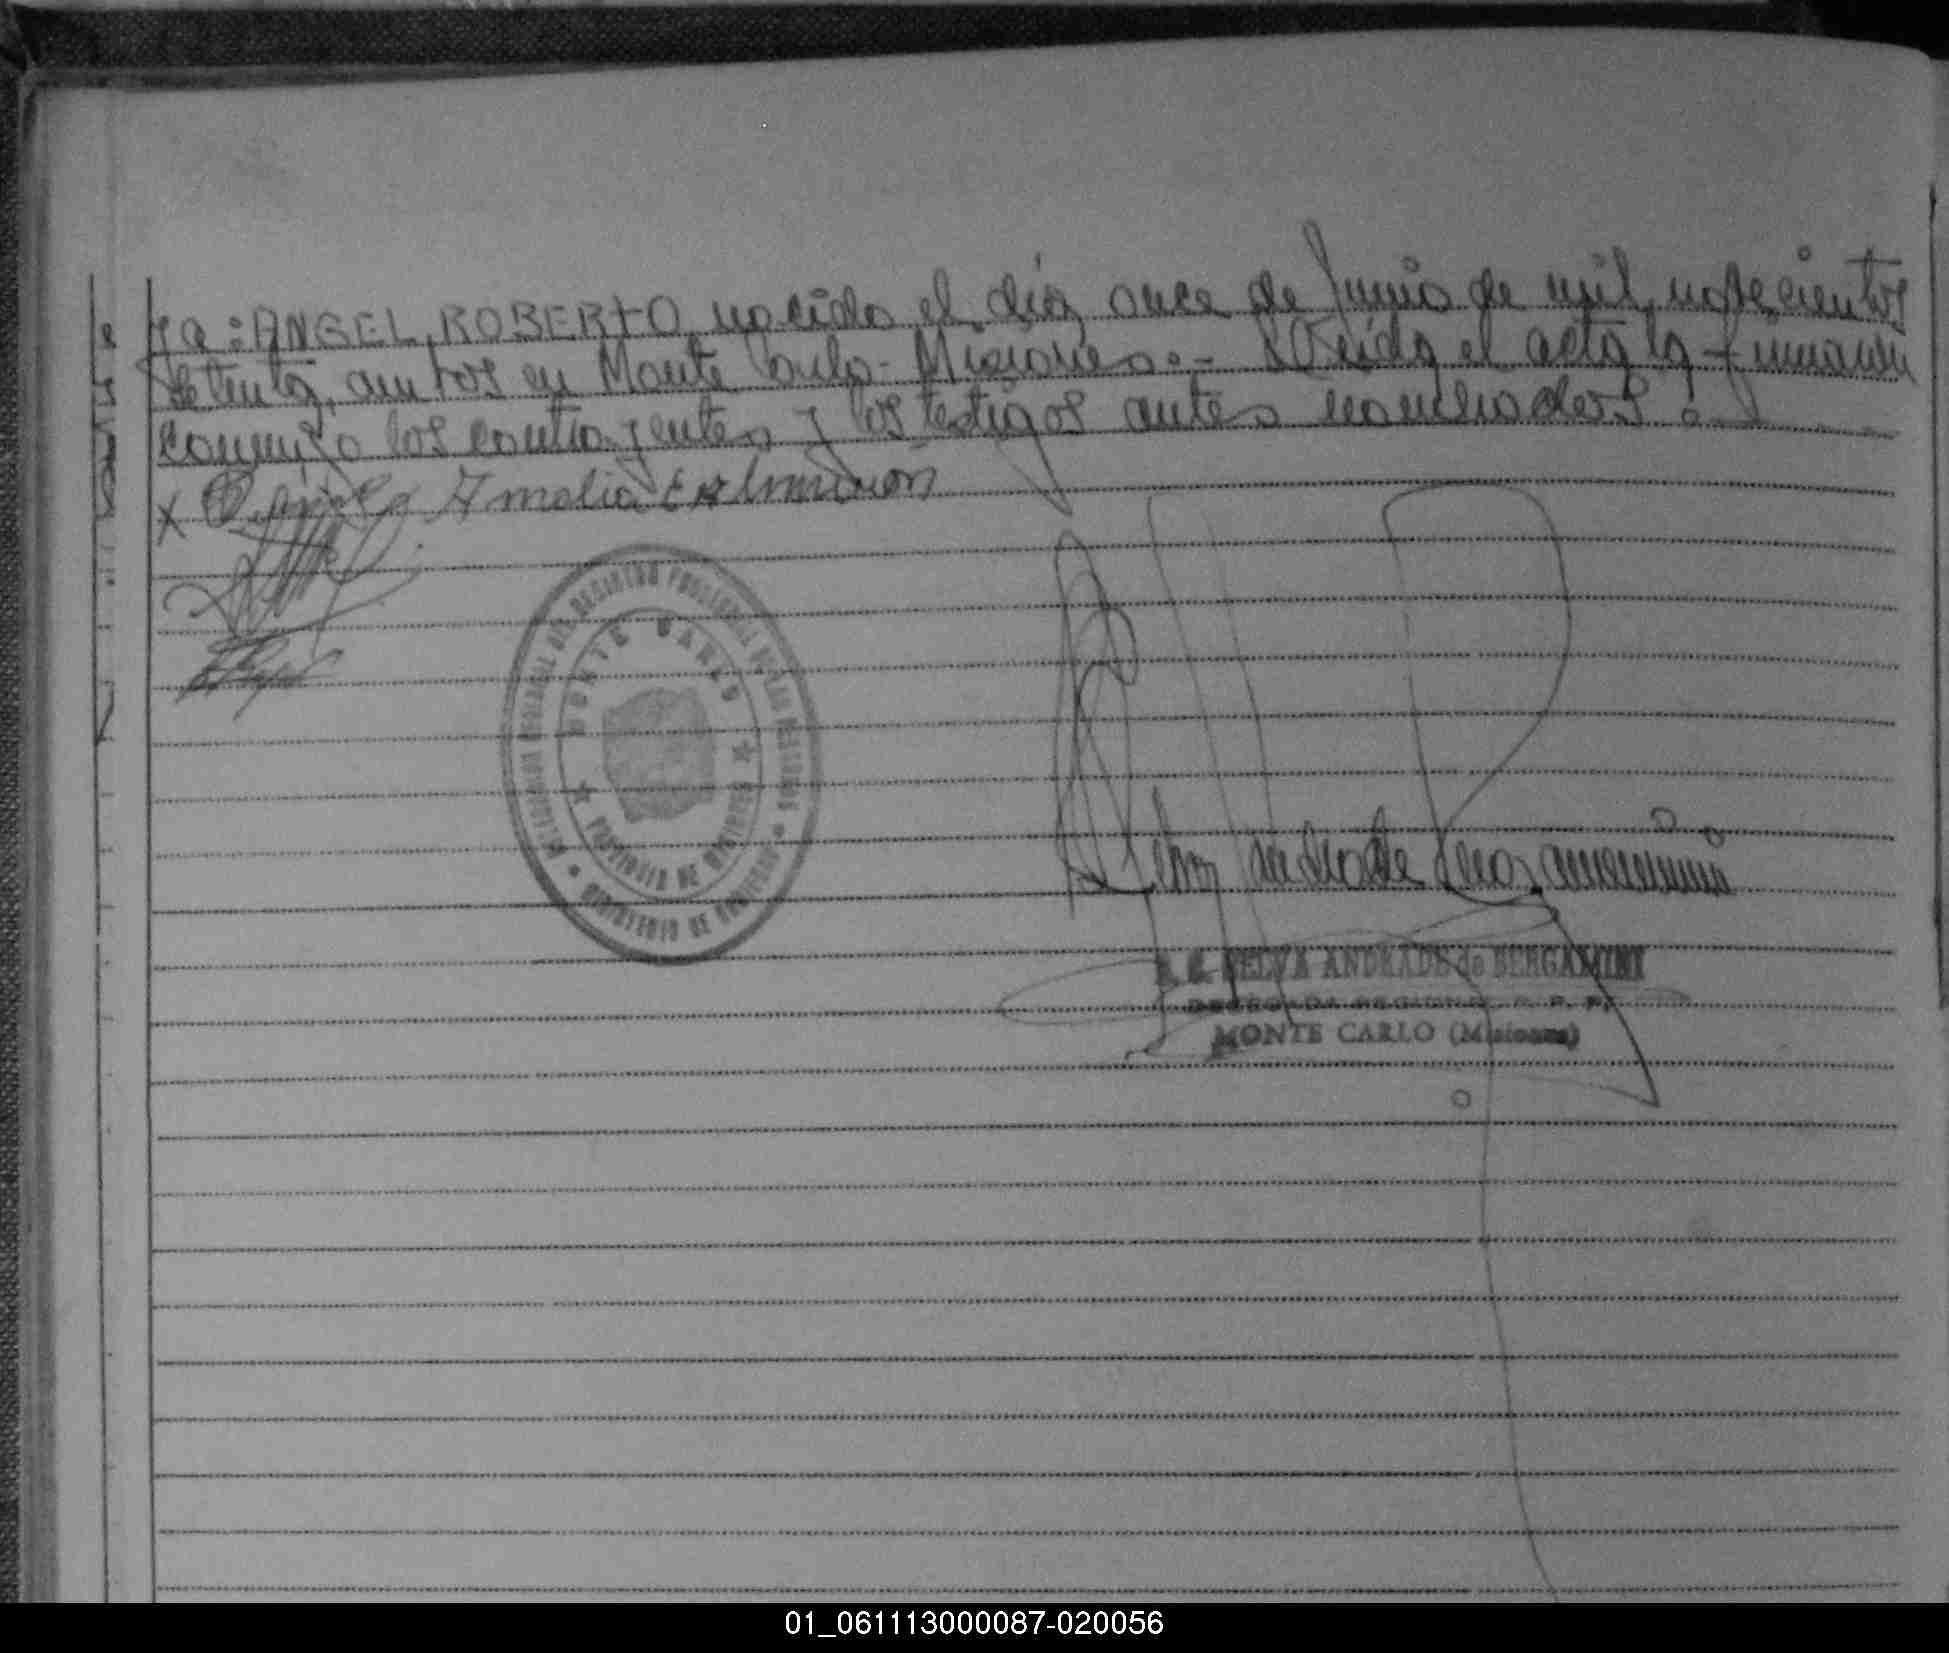 ya: ANGEL ROBERTO nacido el día once de Junio de mil novecientos
setenta, ambos en Monte Carlo- Misiones.- Leída el acta la firmaron
conmigo los contrayentes y los testigos antes nombrados.-
x Amalia
DELEGACION REGIONAL DEL REGISTRO PROVINCIAL DE LAS PERSONAS
MONTE CARLO
PROVINCIA DE MISIONES
MINISTERIO DE GOBIERNO
SELVA ANDRADE de BERGAMINI
DELEGADA REGIONAL R. P. P.
MONTE CARLO (Misiones)
01_061113000087-020056